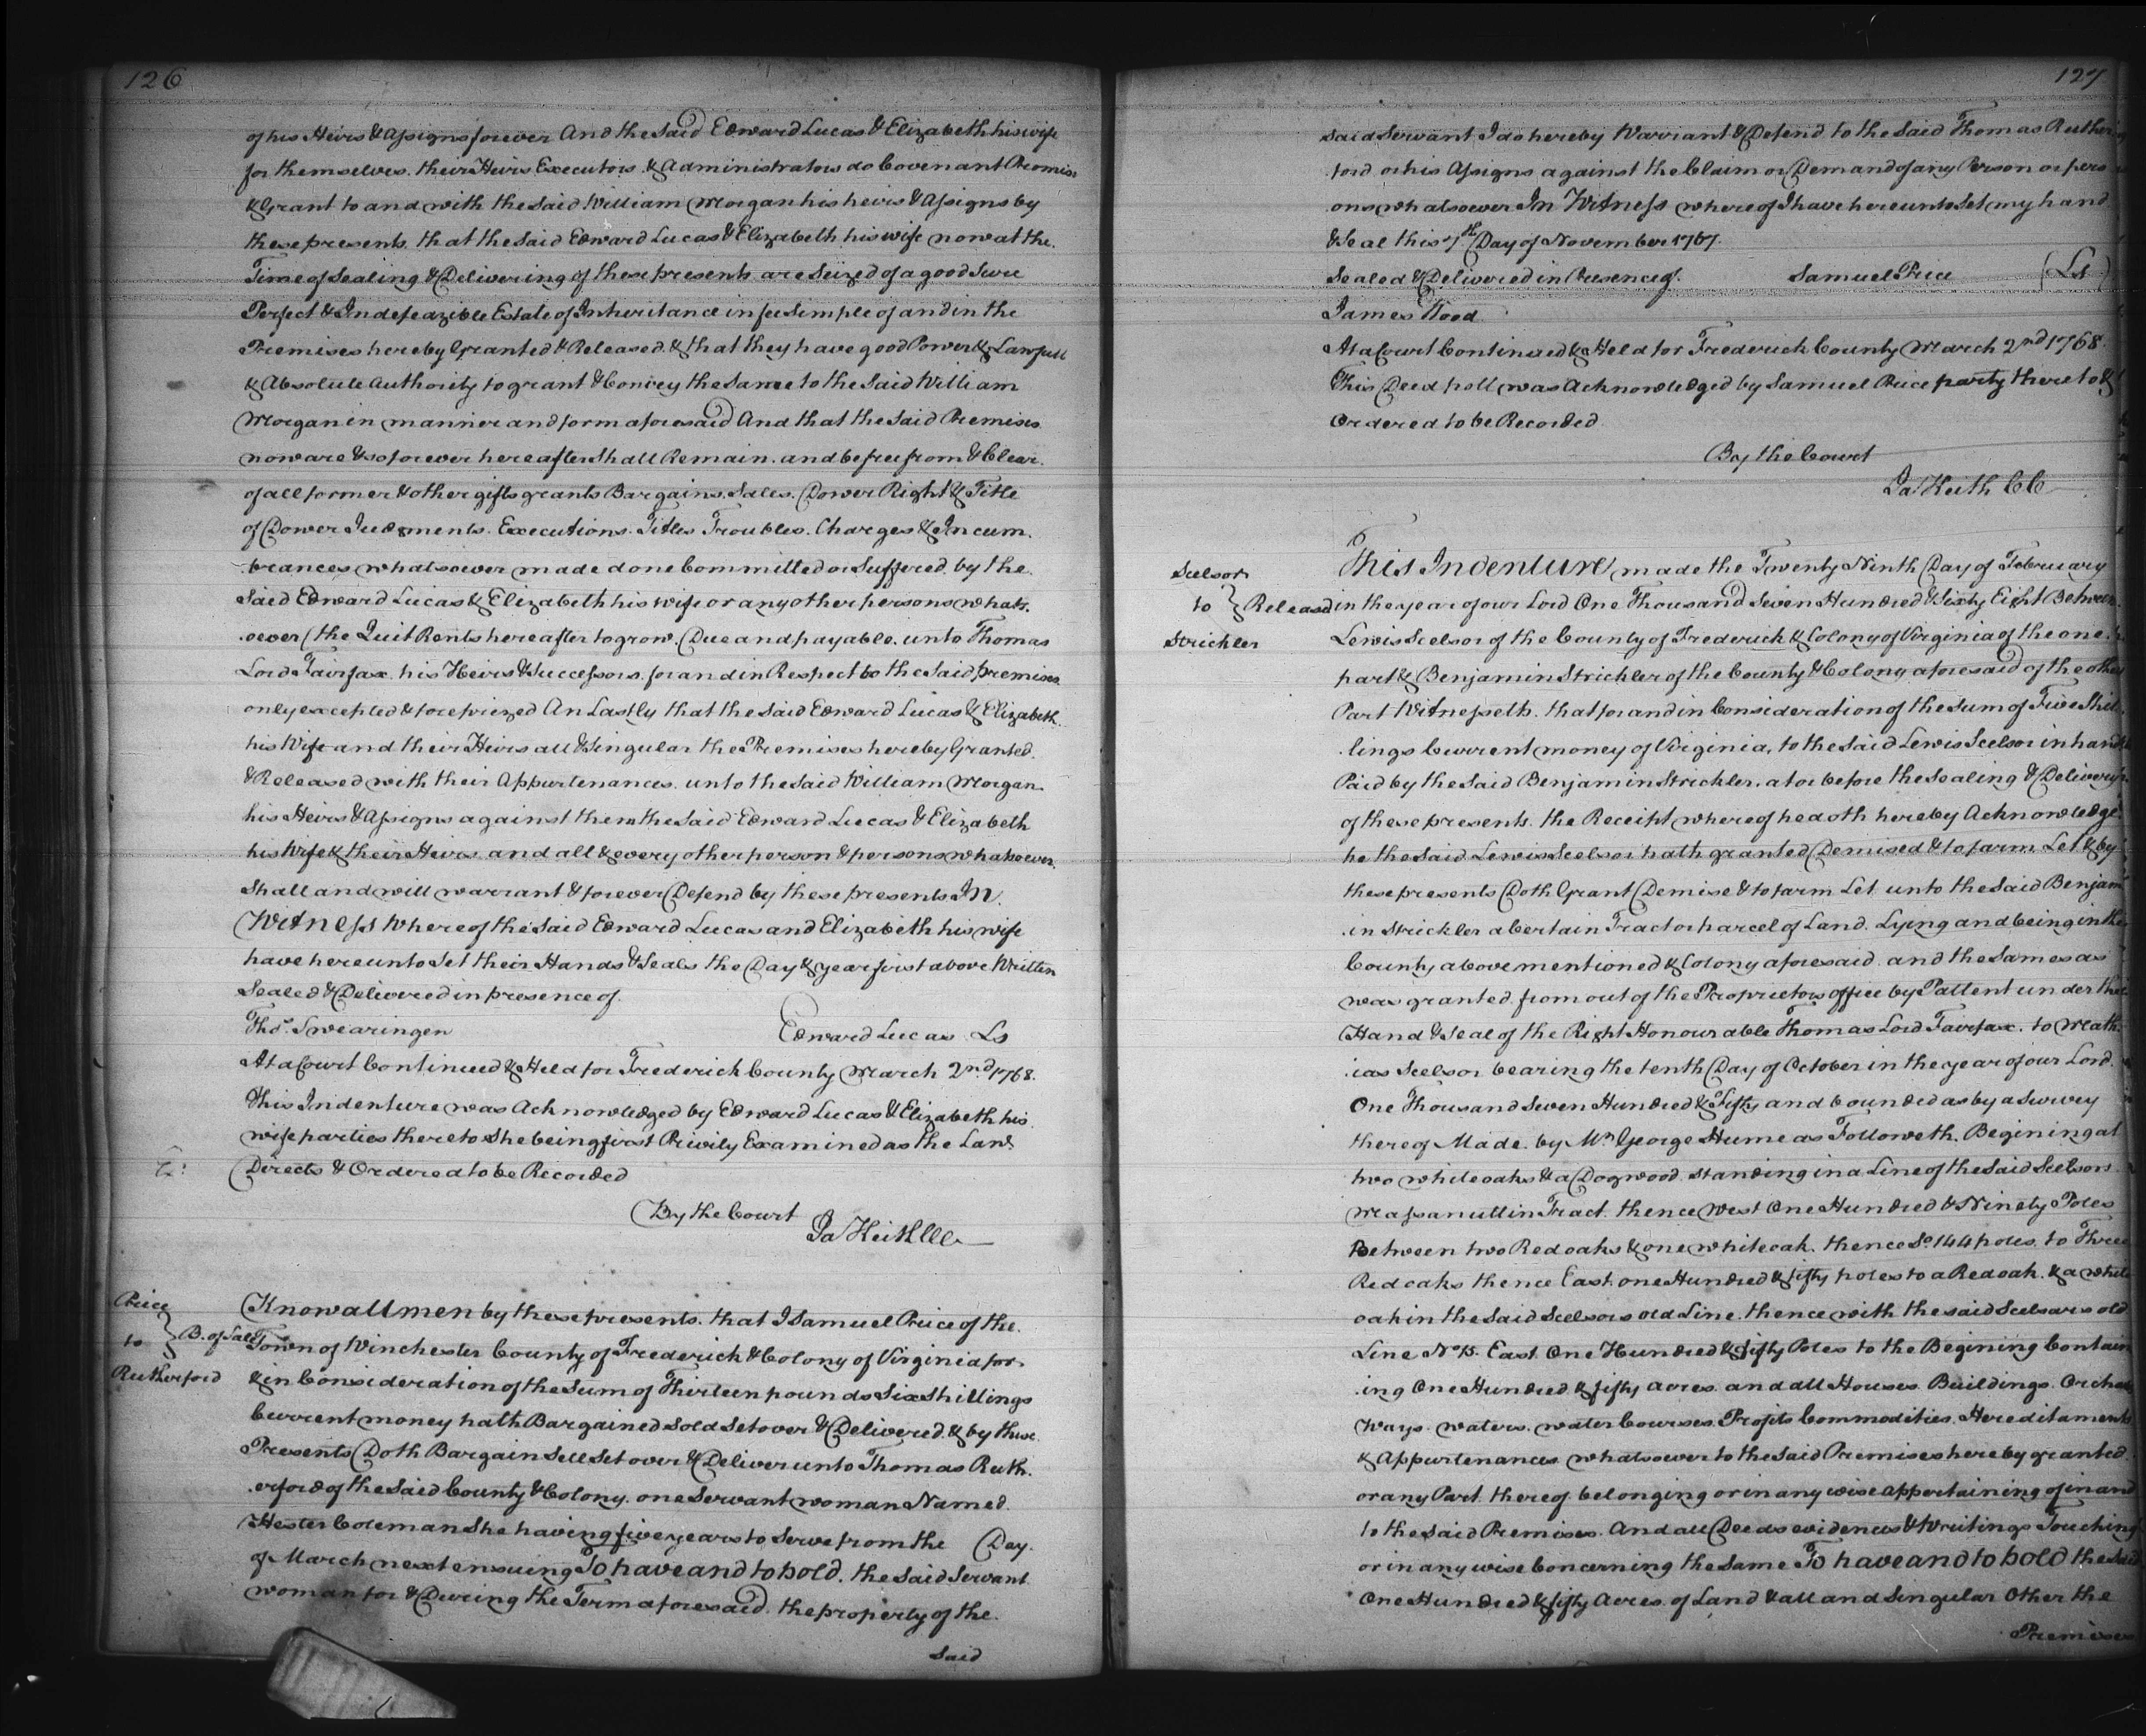 126
of his Heirs & Assigns forever And the Said Edward Lucas & Elizabeth his wife
for themselves. their Heirs Executors. & Administrators do Covenant Promise
& Grant to and with the Said William Morgan his heirs & Assigns by
these presents. that the Said Edward Lucas & Elizabeth his wife now at the.
Time of Sealing & Delivering of these presents are Seized of a good Sure
Perfect & Indefeazible Estate of Inheritance in fee Simple of and in the
Premises hereby Granted & Released. & that they have good Power & Lawfull
& Absolute Authority to grant & Convey the Same to the Said William
Morgan in manner and form aforesaid And that the Said Premises
now are & so forever hereafter Shall Remain. and be free from & Clear.
of all former & other gifts grants Bargains. Sales. Dower Right & Title
of Dower Judgments. Executions. Titles Troubles. Charges & Incum.
.brances whatsoever made done Committed or Suffered. by the.
Said Edward Lucas & Elizabeth his wife or any other persons whats.
.oever (the Quit Rents hereafter to grow. Due and payable. unto Thomas
Lord Fairfax. his Heirs & Successors. for and in Respect to the Said premises
only excepted & foreprized An Lastly that the Said Edward Lucas & Elizabeth.
his Wife and their Heirs all & Singular the Premises hereby Granted.
& Released with their Appurtenances. unto the Said William Morgan.
his Heirs & Assigns against them the Said Edward Lucas & Elizabeth
his Wife & their Heirs. and all & every other person & persons whatsoever.
Shall and will warrant & forever Defend by these presents In.
Witness Whereof the Said Edward Lucas and Elizabeth his wife
have hereunto Set their Hands & Seals the Day & year first above Written
Sealed & Delivered in presence of.
Thos. Swearingen Edward Lucas Ls
At a Court Continued & Held for Frederick County March 2nd 1768.
This Indenture was Acknowledged by Edward Lucas & Elizabeth his.
wife parties thereto She being first Privily Examined as the Law.
Directs & Ordered to be Recorded
By the Court
Ja Keith CC
Price
to } B. of Sale
Rutherford
Know all men by these presents. that I Samuel Price of the.
Town of Winchester County of Frederick & Colony of Virginia for.
& in Consideration of the Sum of Thirteen pounds Six Shillings
Current money hath Bargained Sold Set over & Delivered. & by these.
Presents Doth Bargain Sell Set over & Deliver unto Thomas Ruth.
.erford of the Said County & Colony. one Servant woman Named.
Hester Coleman She having five years to Serve from the Day.
of March next ensuing To have and to hold. the Said Servant
woman for & During the Term aforesaid. the property of the.
Said
127
Said Servant I do hereby Warrant & Defend to the Said Thomas Ruther
.ford or his Assigns against the Claim or Demand of any Person or pers
.ons whatsoever In Witness whereof I have hereunto Set my hand
& Seal this 7th Day of November 1767.
Sealed & Delivered in Presence of. Samuel Price (Ls)
James Wood.
At a Court Continued & Held for Frederick County March 2nd 1768.
This Deed poll was Acknowledged by Samuel Price party thereto &
Ordered to be Recorded
By the Court
Ja Keith CC
Seelsor
to } Release
Strickler
This Indenture made the Twenty Ninth Day of February
in the year of our Lord One Thousand Seven Hundred & Sixty Eight Between
Lewis Seelsor of the County of Frederick & Colony of Virginia of the one.
part & Benjamin Strickler of the County & Colony aforesaid of the other
Part Witnesseth. that for and in Consideration of the Sum of Five Shil.
.lings Current money of Virginia, to the Said Lewis Seelsor in hand
Paid by the Said Benjamin Strickler. at or before the Sealing & Delivery
of these presents. the Receipt whereof he doth hereby Acknowledge.
he the Said Lewis Seelsor hath granted Demised & to farm Let & by
these presents Doth Grant Demise & to farm Let unto the Said Benjam
.in Strickler a Certain Tract or parcel of Land. Lying and being in the
County above mentioned & Colony aforesaid. and the Same as
was granted. from out of the Proprietors office by Pattent under the
Hand & Seal of the Right Honourable Thomas Lord Fairfax. to Math.
.ias Seelsor bearing the tenth Day of October in the year of our Lord.
One Thousand Seven Hundred & Fifty and bounded as by a Survey
thereof Made. by Mr. George Hume as Followeth. Begining at
two white oaks & a Dogwood standing in a Line of the Said Seelsors
Massanuttin Tract. thence West One Hundred & Ninety Poles
Between two Red oaks & one white oak. thence So. 144 poles. to Three
Red oaks thence East. one Hundred & fifty poles to a Red oak. & a white
oak in the Said Seelsors old Line. thence with the said Seelsors old
Line No. 15. East. One Hundred & fifty Poles to the Begining Contain
.ing One Hundred & fifty acres. and all Houses. Buildings. Orchards
Ways. waters. water Courses. Profits Commodities. Hereditaments
& Appurtenances whatsoever to the Said Premises hereby granted.
or any Part. thereof. belonging or in any wise appertaining of in and
to the Said Premises. And all Deeds evidences & Writings Touching
or in any wise Concerning the Same To have and to hold the Said
One Hundred & fifty Acres. of Land & all and Singular Other the
Premises